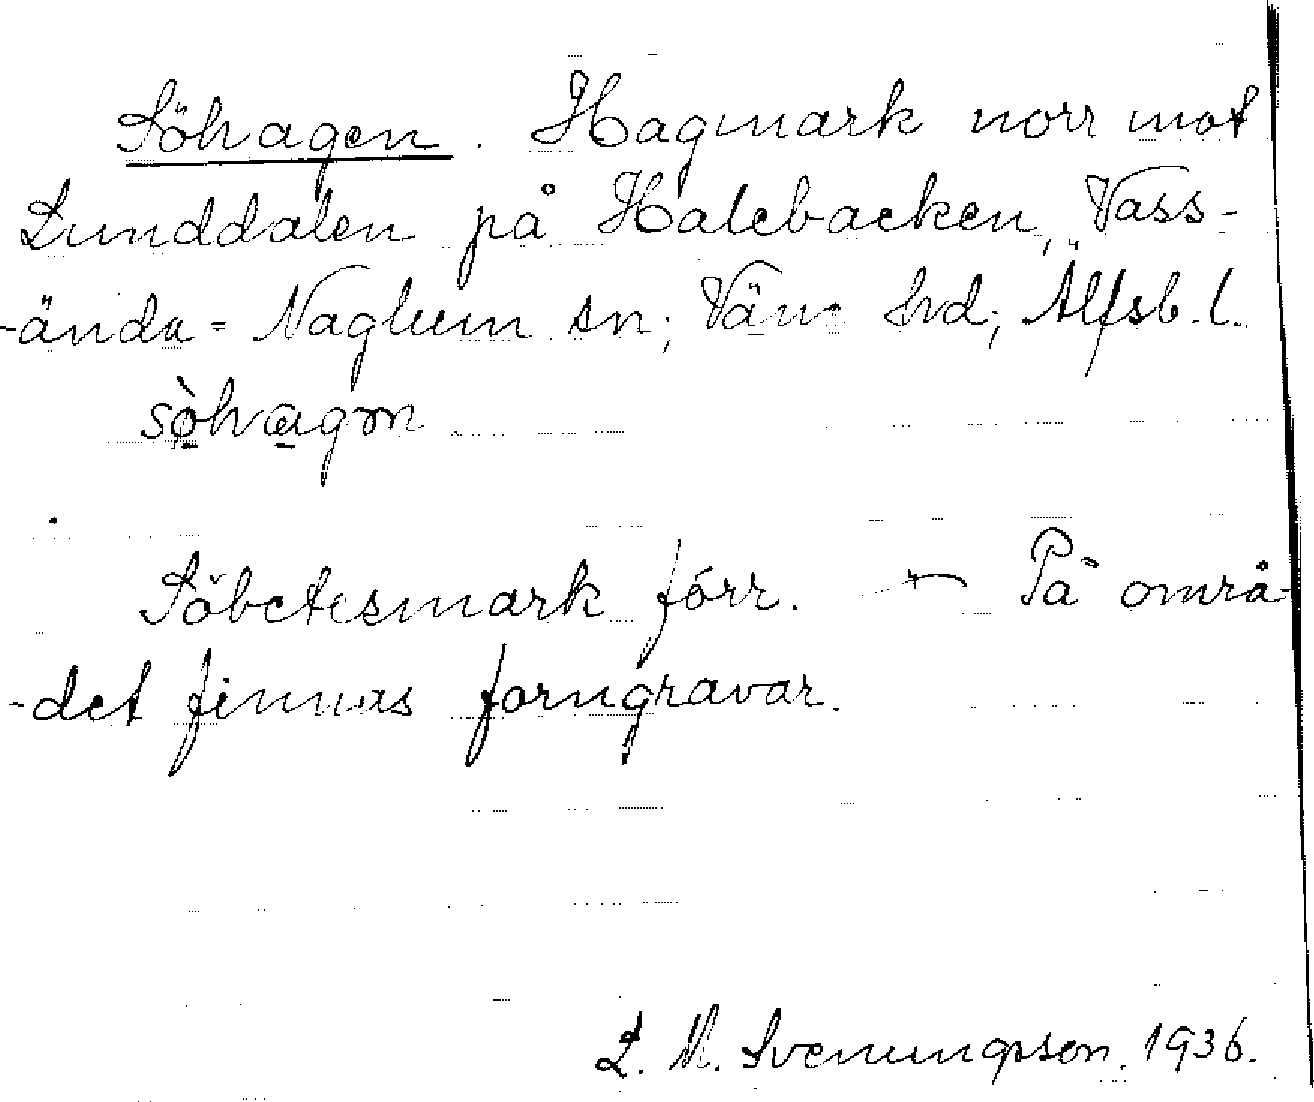 Söhagen. Hagmark norr mot
Lunddalen på Halebacken, Vass-
-ända-Naglum sn; Väne hrd; Älfsb. l.
sòhagən
Söbetesmark förr. — På områ-
-det finnas forngravar.
L. M. Svenungsson. 1936.